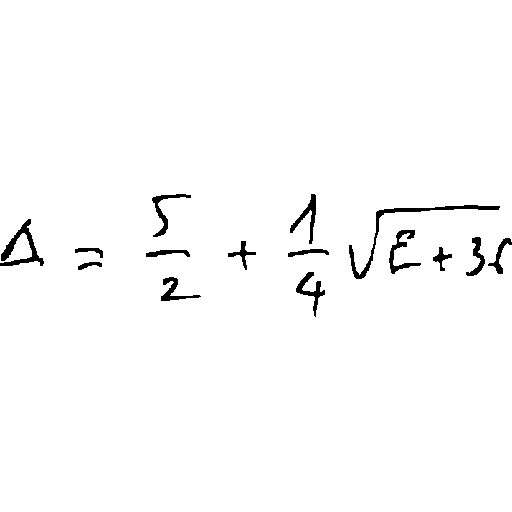 Δ = \frac{5}{2} + \frac{1}{4} \sqrt{E + 36}